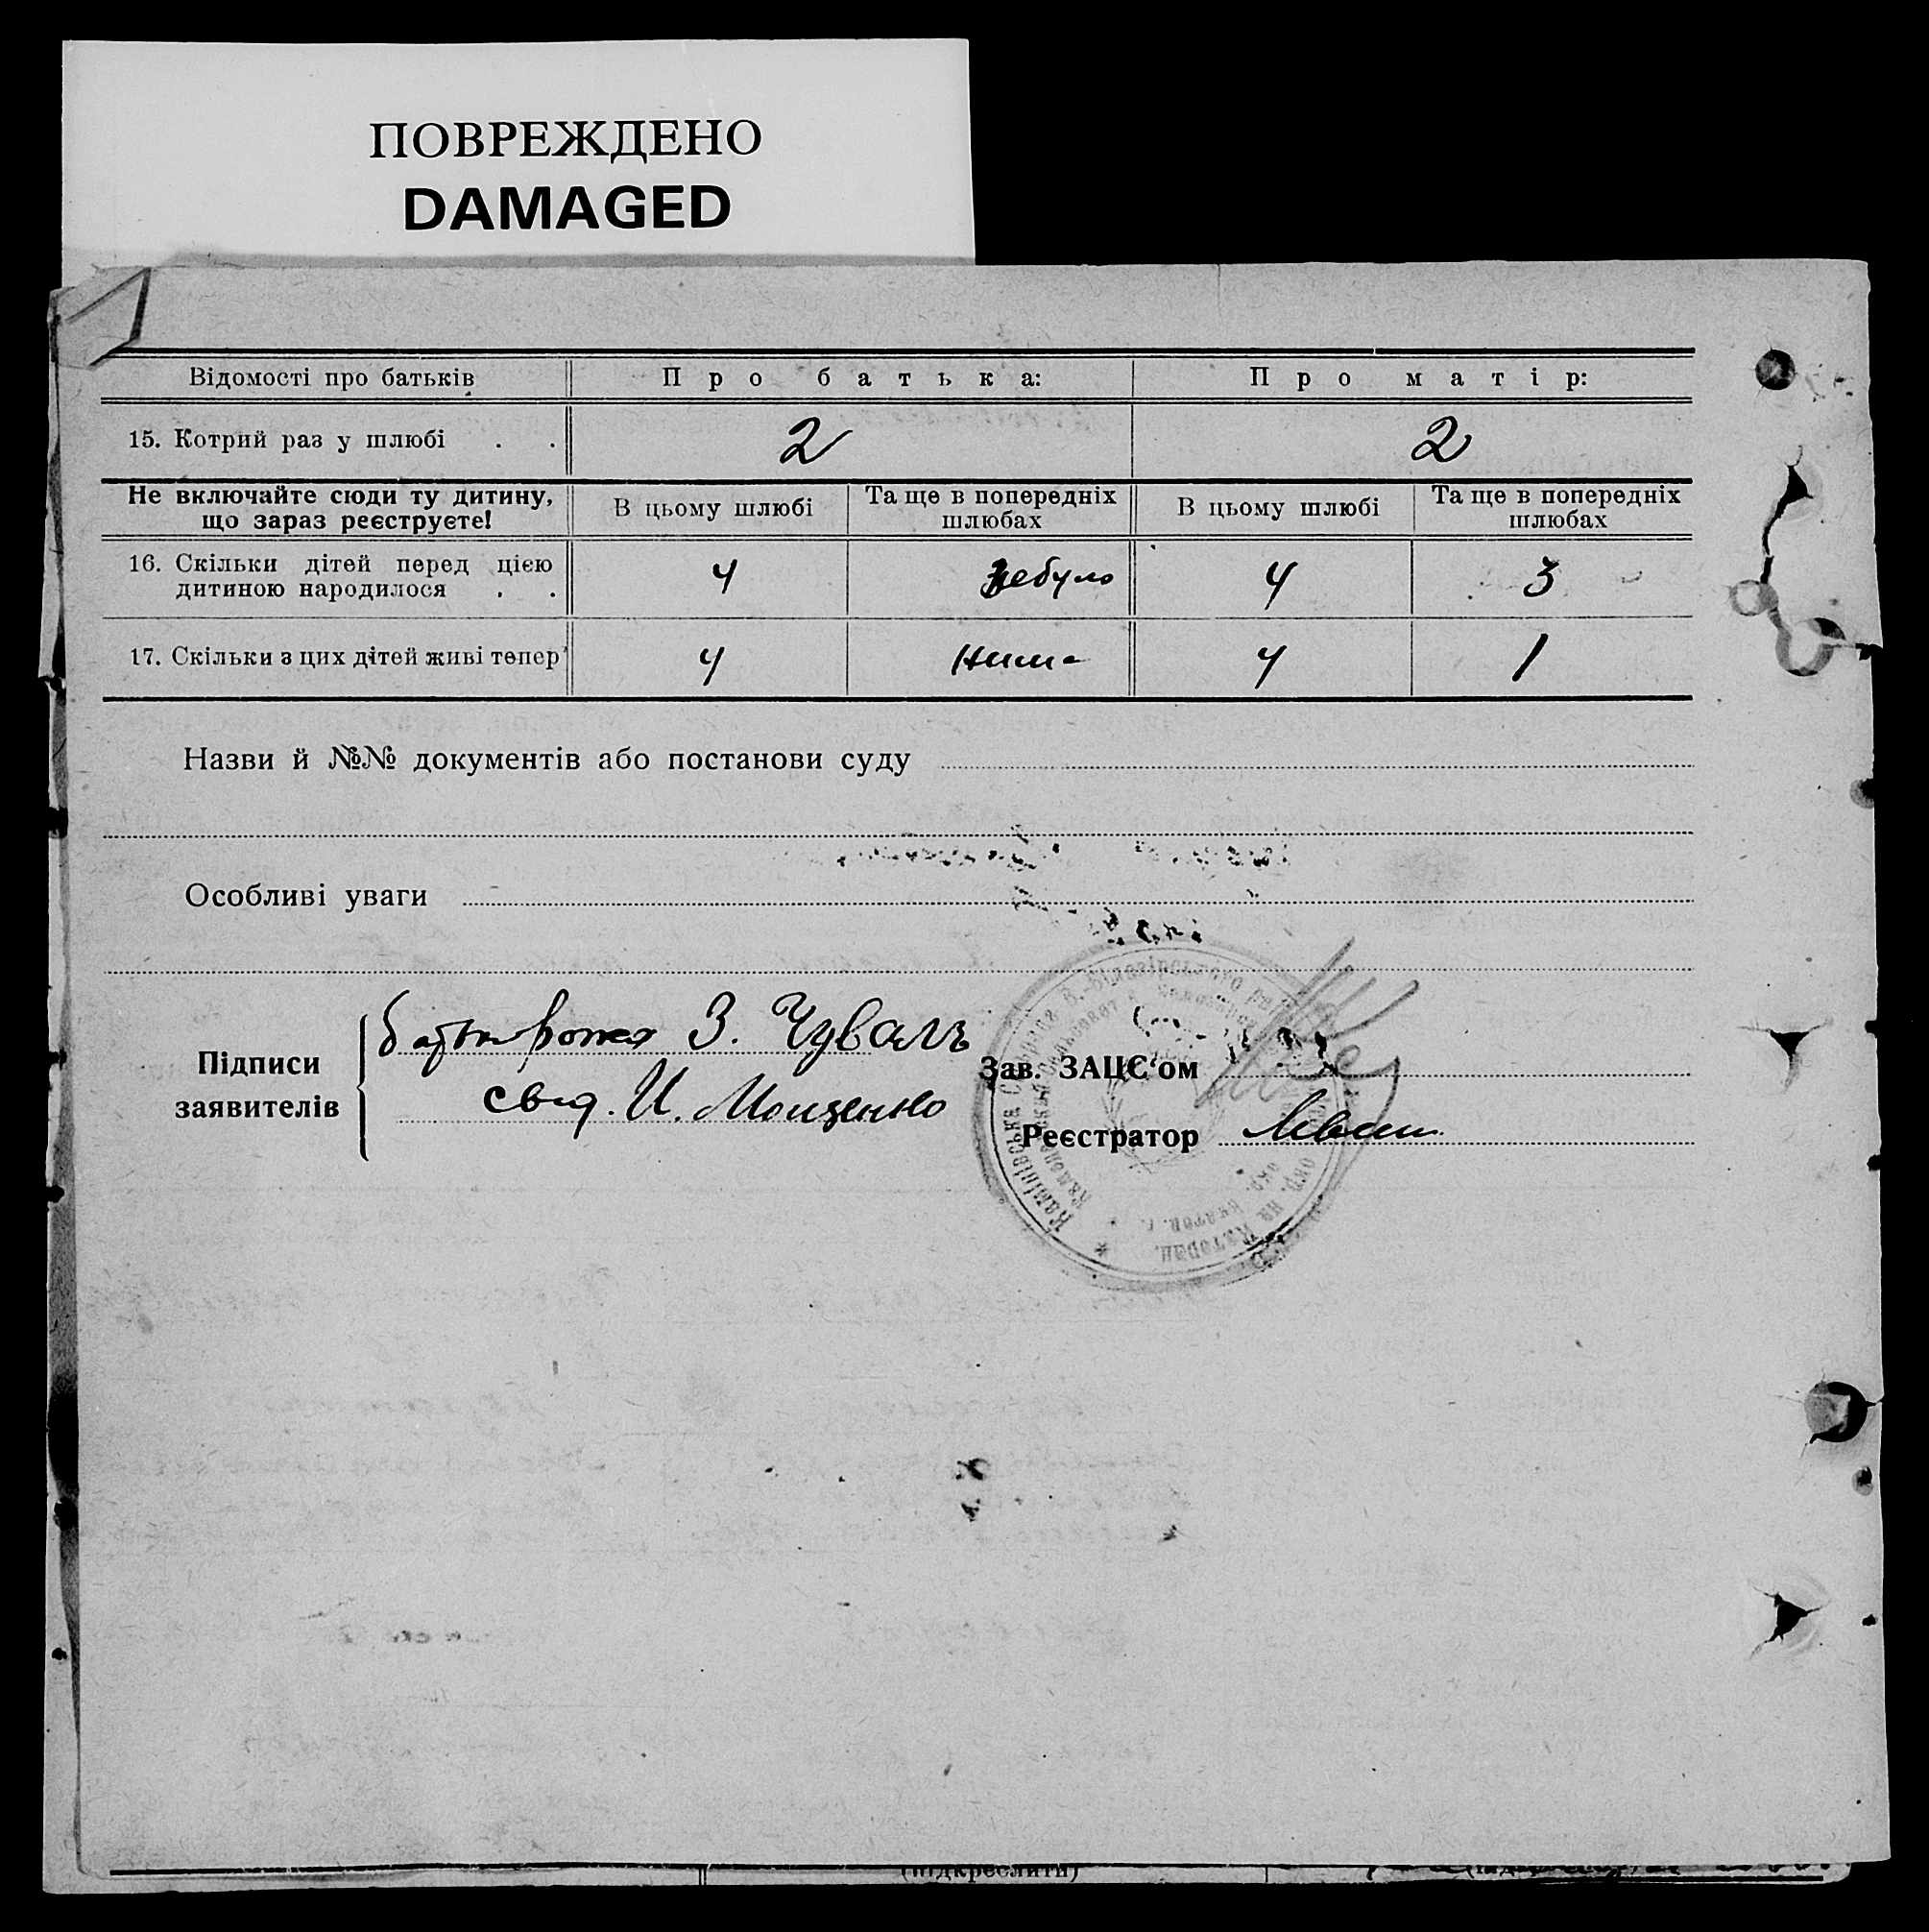 ПОВРЕЖДЕНО
DAMAGED
Відомості про батьків
Про батька:
Про матір:
15. Котрий раз у шлюбі . .
2
2
Не включайте сюди ту дитину,
що зараз реєструєте!
В цьому шлюбі
Та ще в попередніх
шлюбах
В цьому шлюбі
Та ще в попередніх
шлюбах
16. Скільки дітей перед цією
дитиною народилося . .
4
небуло
4
3
17. Скільки з цих дітей живі тепер
4
4
1
Назви й №№ документів або постанови суду
Особливі уваги
Підписи
заявителів
З. Чуваль
свид. И. Мощенко
Зав. ЗАЦС'ом
Реєстратор
Камінівська
(підкреслити)